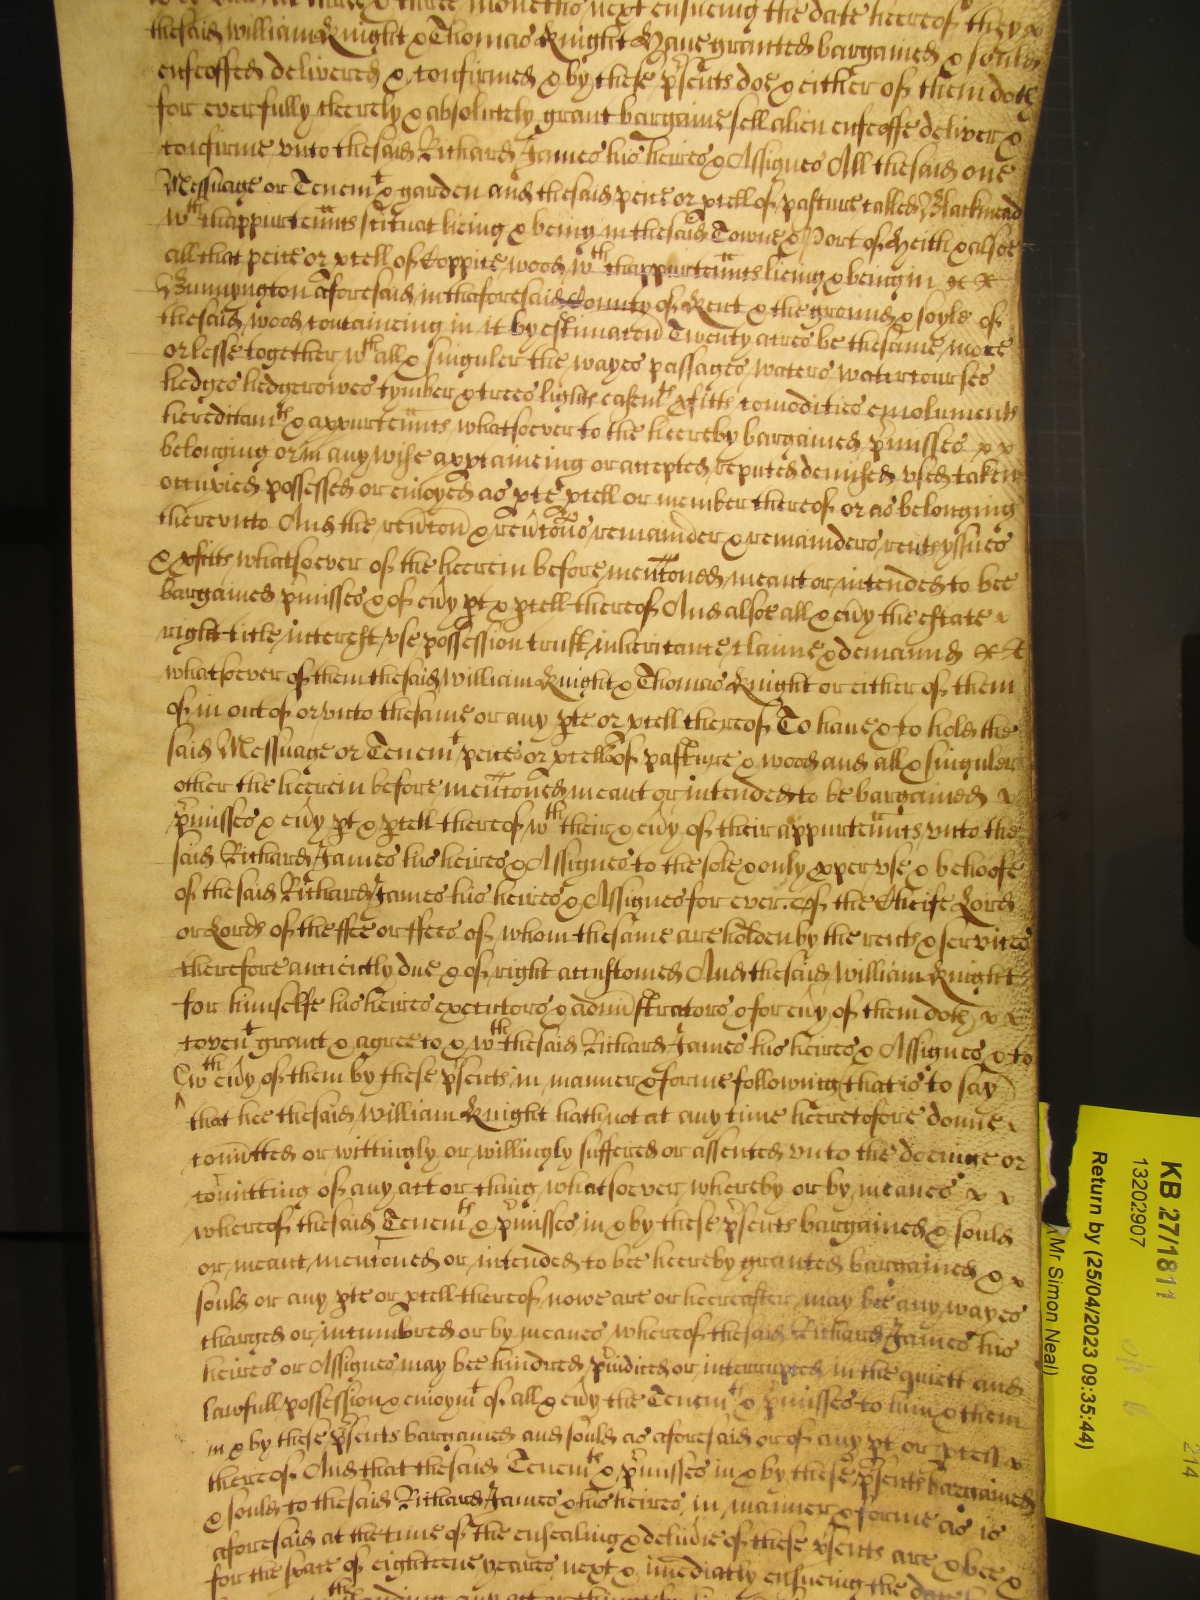 three monethes next ensueing the date heereof they x
thesaid William Knight & Thomas Knight Have granted bargained & sould
enfeoffed delivered & confirmed & by these p̃sents doe & either of them doth
for ever fully cleerely & absolutely grant bargaine sell alien enfeoffe deliver &
confirme vnto thesaid Richard James his heires & Assignes All thesaid one
Messuage or Tenemt & garden and thesaid peece or p̱cell of pasture called Blackmead
wth thappurtenn̄ts scituat lieing & being in thesaid Towne & Port of Heith & alsoe
all that peece or p̱cell of Coppice wood wth thappurtenn̄ts lieing & being in x x
Bunnyngton aforesaid in thaforesaid County of Kent & the ground & soyle of
thesaid wood containeing in it by estimacōn Twenty acres be thesame more
or lesse together wth all & singuler the wayes passages waters watercourses
hedges hedgerowes tymber & trees lights easemts p̱fitts comodities emoluments
hereditamts & appurtenn̄ts whatsoever to the heereby bargained p̃misses x x
belonging or in any wise app̱taineing or accepted reputed demised vsed taken
occupied possessed or enioyed as p̱te p̱cell or member thereof or as belonging
therevnto And the reūcōn & reūcōns remainder & remainders rents yssues
& p̱fitts whatsoever of the heerein before menc̄oned meant or intended to bee
bargained p̃misses & of eūy pt & p̱cell thereof And alsoe all & eūy the estate x
right title interest vse possession trust inheritance claime & demaund x x
whatsoever of them thesaid William Knight & Thomas Knight or either of them
of in out of or vnto thesame or any p̱te or p̱cell thereof To have & to hold the
said Messuage or Tenemt peece or p̱cell of pasture & wood and all & singuler
other the heerein before menc̄oned meant or intended to be bargained x
p̃misses & eūy pt & p̱cell thereof wth their & eūy of their appurtenn̄ts vnto the
said Richard James his heires & Assignes to the sole & only p̱per vse & behoofe
of thesaid Richard James his heires & Assignes for ever. Of the Cheife Lord
or Lords of the ffee or ffees of whom thesame are holden by the rents & services
therefore anciently due & of right accustomed And thesaid William Knight
for himselfe his heires executors & admīstrators & for eūy of them doth x x
covent grant & agree to & wth thesaid Richard James his heires & Assignes & to
& wth eūy of them by these p̃sents in manner & forme following that is to say
that hee thesaid William Knight hath not at any time heeretofore donne x
com̄itted or wittingly or willingly suffered or assented vnto the doeinge or
com̄itting of any act or thing whatsoever whereby or by meanes x x
whereof thesaid Tenemts & p̃misses in & by these p̃sents bargained & sould
or meant menc̄oned or intended to bee heereby granted bargained & x
sould or any p̱te or p̱cell thereof nowe are or heereafter may bee any wayes
charged or incumbred or by meanes whereof thesaid Richard James his
heires or Assignes may bee hindred p̃iudiced or interrupted in the quiett and
lawfull possession & enioymt of all & eūy the Tenemt & p̃misses to him & them
in & by these p̃sents bargained and sould as aforesaid or of any pt or p̱cell x
thereof And that thesaid Tenemts & p̃misses in & by these p̃sents bargained
& sould to thesaid Richard James & his heires in manner & forme as is
aforesaid at the time of the ensealing & deliūie of these p̃sents are & bee x
for the space of eighteene yeares next & im̄ediatly ensueing the date
KB 27/1811
13202907
Return by (25/04/2023 09:35:44)
(Mr Simon Neal)
214